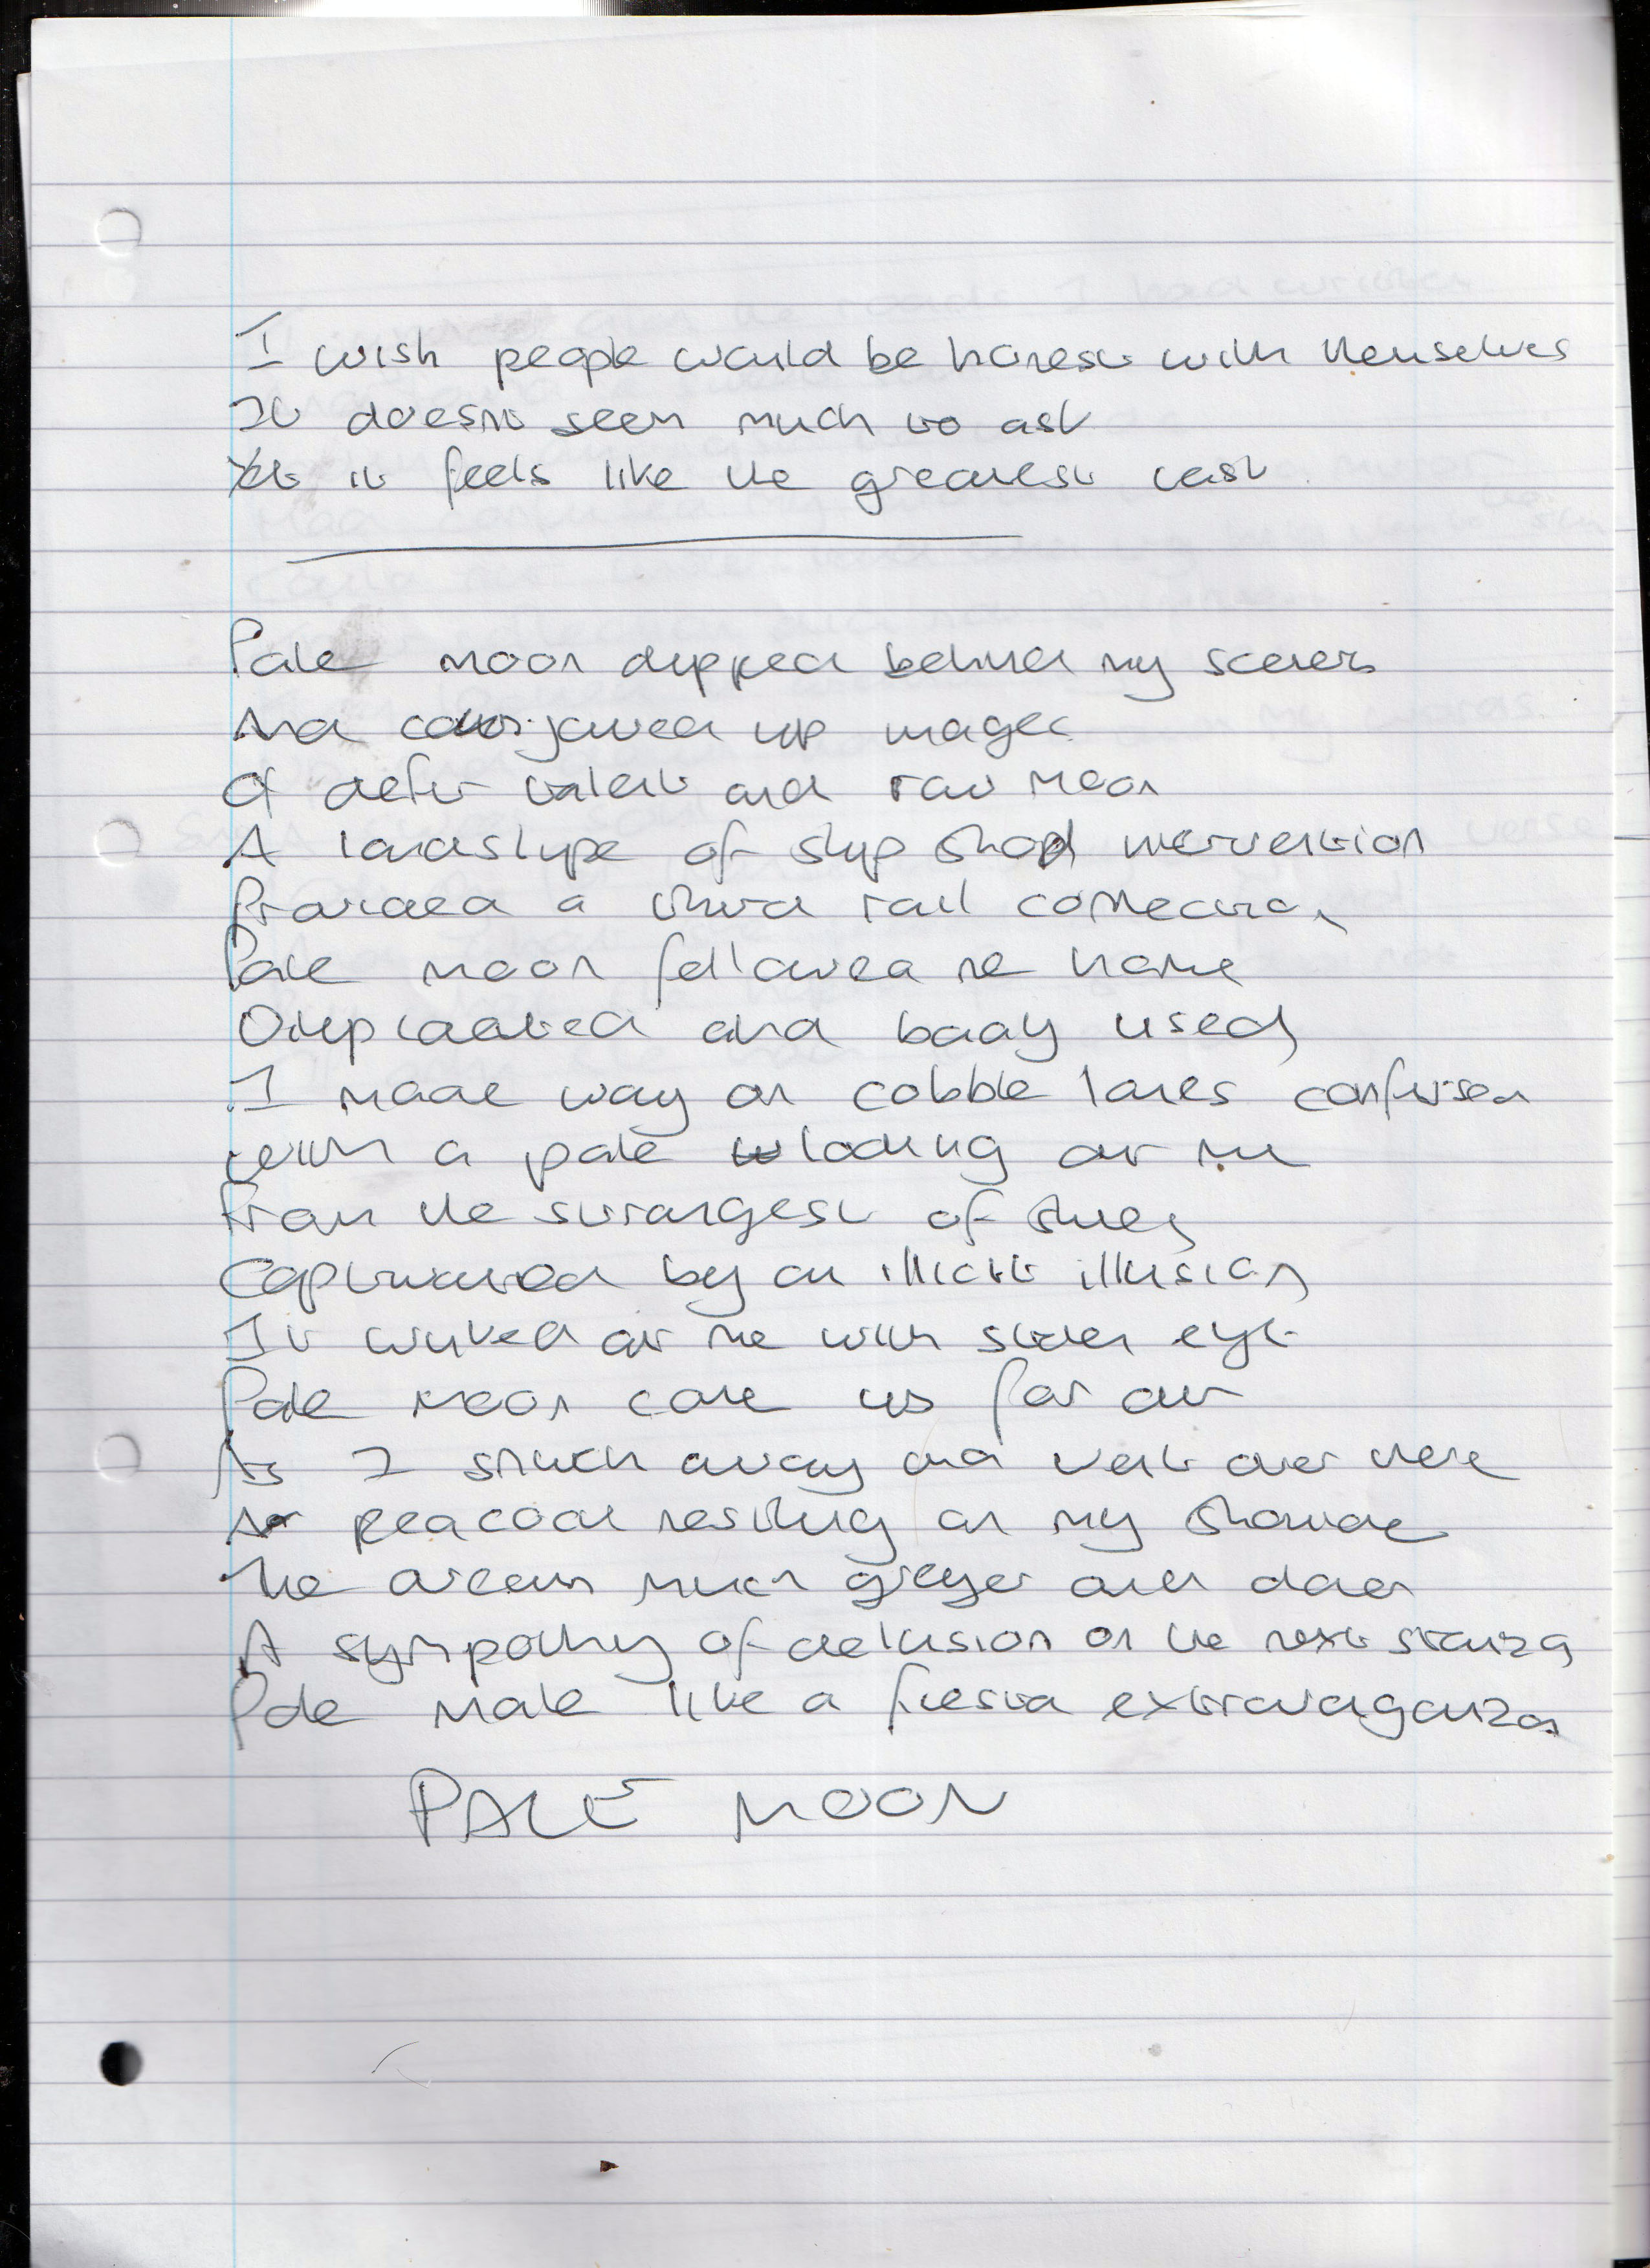 I wish people would be honest with themselves
It doesnt seem much to ask
Yet it feels like the greatest task
Pale moon dipped behind my screen
And conjured up images
Of deft talent and raw
A landslype of slip shod intervention
Provided a third rail connection
Pale moon followed me home
Duplicated and badly used
I made way on cobble lanes confused
With a pale looking at me
From the strangest of skies
Captivated by an illicit illusion
It winked at me with silver eye
Pale moon came up for air
As I snuck away and went over there
A peacock nestling on my shoulder
The dream much greyer and older
A sympathy of delusion on the next stanza
Pale male like a fiesta extravaganza
PALE MOON